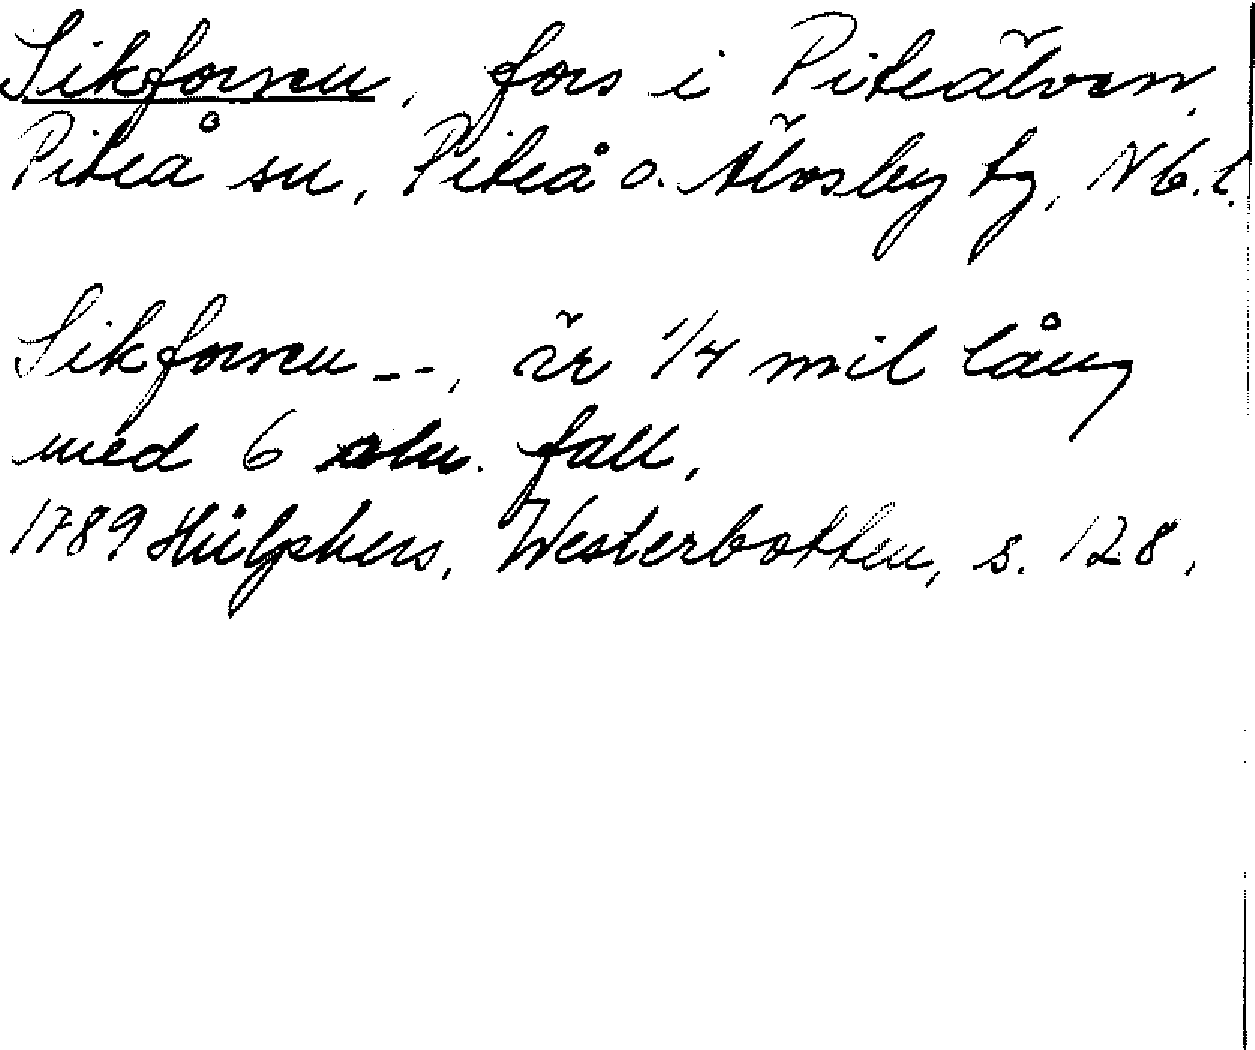 Sikforsen, fors i Piteälven,
Piteå sn, Piteå o. Älvsby tg, Nb.l.
Sikforsen --, är 1/4 mil lång
med 6 aln. fall.
1789 Hülphers, Westerbotten, s. 128.